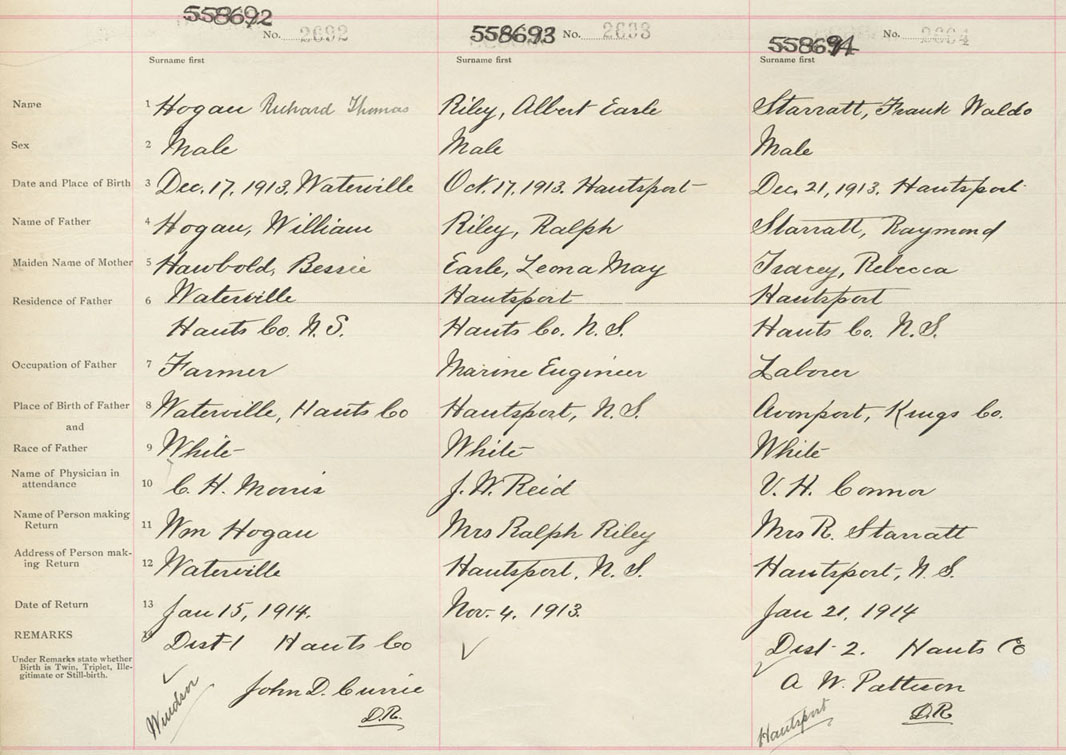 558692 No. 2692 558693 No. 2693 558694 No. 2694
Surname first Surname first Surname first
Name 1 Hogan Richard Thomas Riley, Albert Earle Starratt, Frank Waldo
Sex 2 Male Male Male
Date and Place of Birth 3 Dec. 17, 1913, Waterville Oct. 17, 1913. Hantsport Dec. 21, 1913. Hantsport
Name of Father 4 Hogan, William Riley, Ralph Starratt, Raymond
Maiden Name of Mother 5 Hawbold, Bessie Earle, Leona May Tracey, Rebecca
Residence of Father 6 Waterville Hantsport Hantsport
Hants Co. N.S. Hants Co. N.S. Hants Co. N.S.
Occupation of Father 7 Farmer Marine Engineer Laborer
Place of Birth of Father 8 Waterville, Hants Co Hantsport, N.S. Avonport, Kings Co.
and
Race of Father 9 White White White
Name of Physician in
attendance 10 C. H. Morris J. W. Reid V. H. Connor
Name of Person making
Return 11 Wm Hogan Mrs Ralph Riley Mrs R. Starratt
Address of Person mak-
ing Return 12 Waterville Hantsport, N.S. Hantsport, N.S.
Date of Return 13 Jan 15, 1914. Nov. 4. 1913. Jan 21, 1914
REMARKS 14 Dist 1 Hants Co Dist 2. Hants Co
Under Remarks state whether
Birth is Twin, Triplet, Ille-
gitimate or Still-birth.
Windsor John D. Currie A W. Patterson
D.R. Hantsport D.R